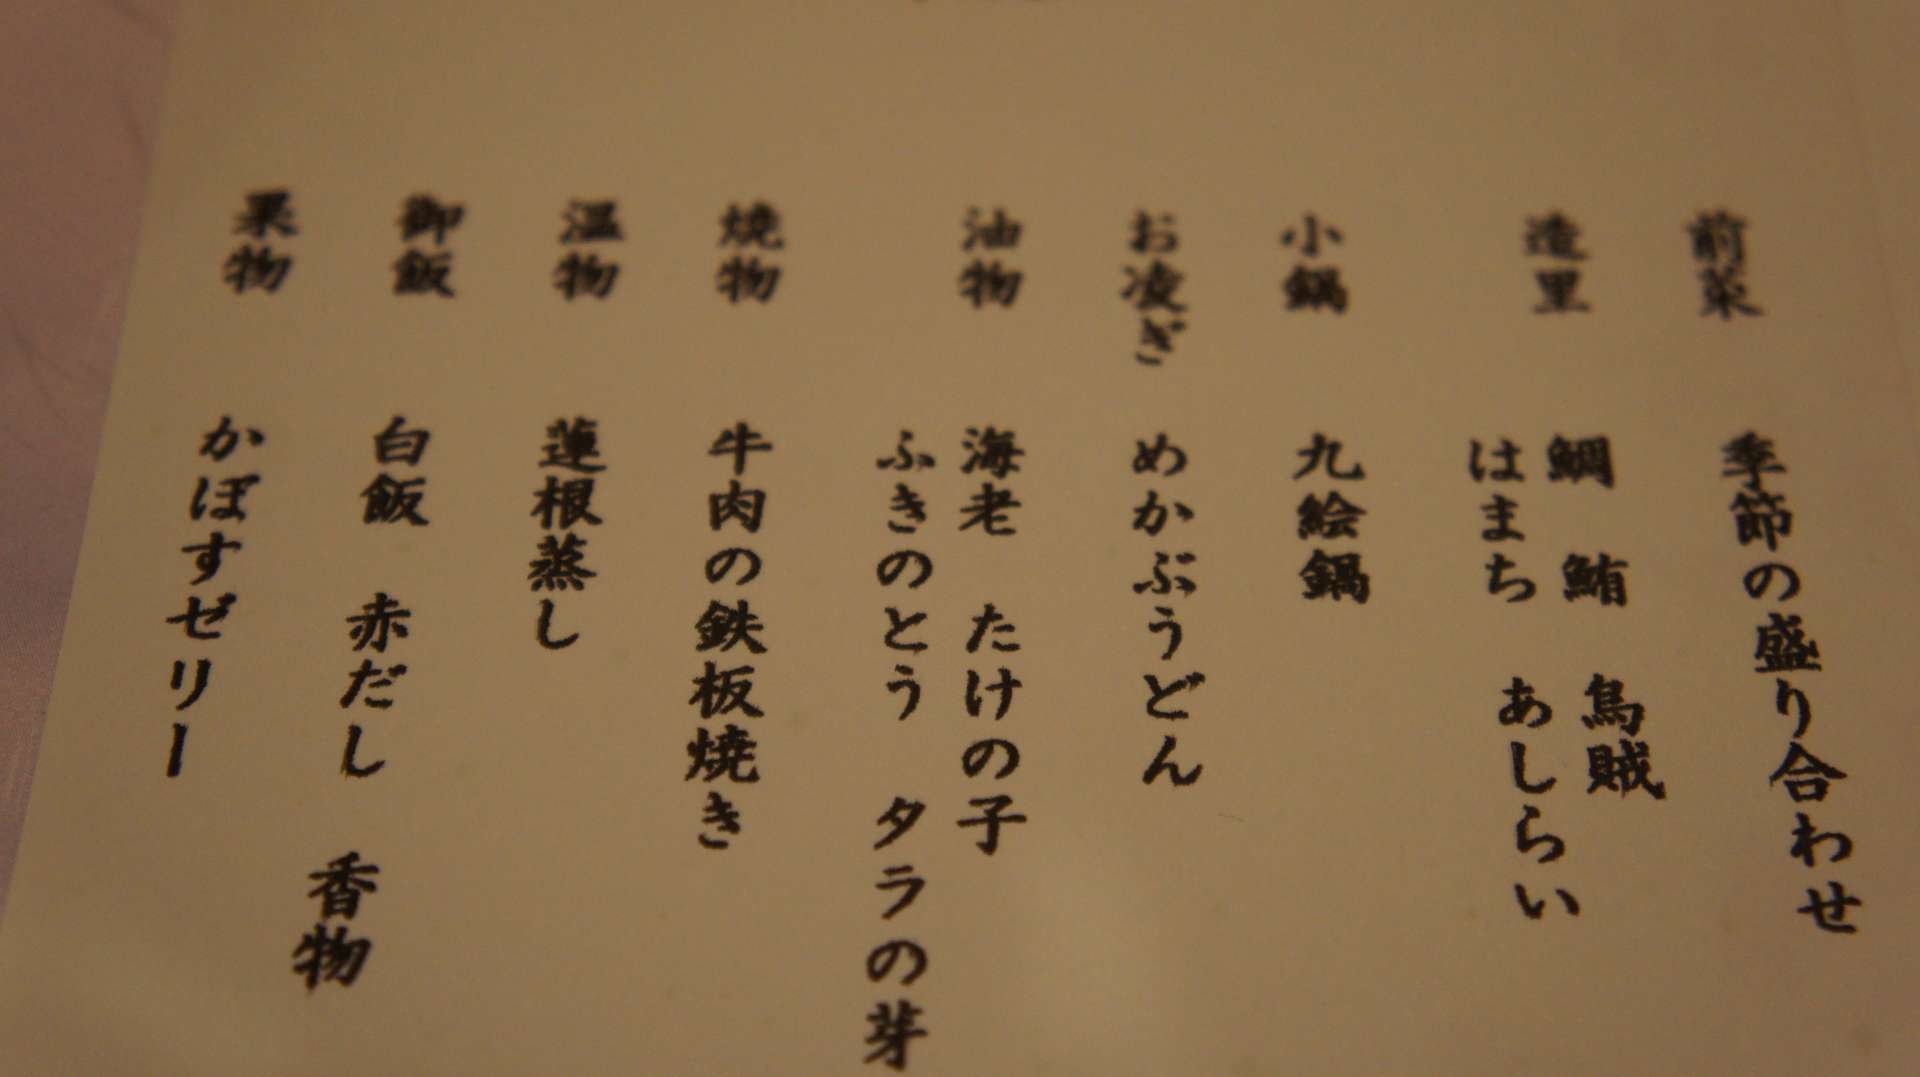 前菜 季節の盛り合わせ
造里 鯛 鮪 烏賊
はまち あしらい
小鍋 九絵鍋
お凌ぎ めかぶうどん
油物 海老 たけの子
ふきのとう タラの芽
焼物 牛肉の鉄板焼き
温物 蓮根蒸し
御飯 白飯 赤だし 香物
果物 かぼすゼリー